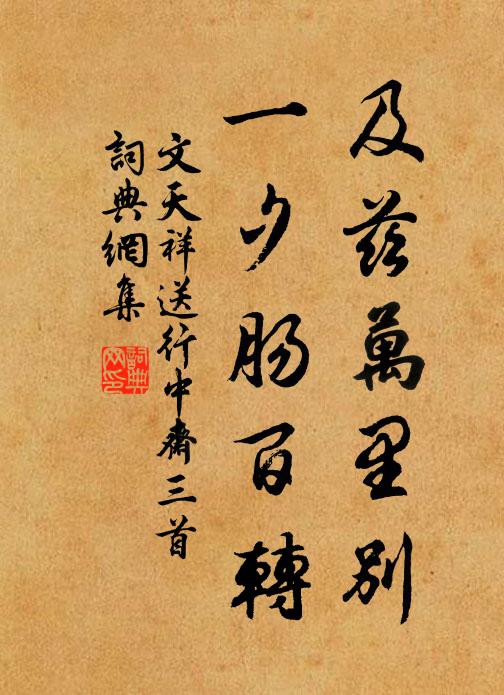 及茲萬里別
一夕肠百轉
文天祥送行中齋三首
詞典網集
詞典網印